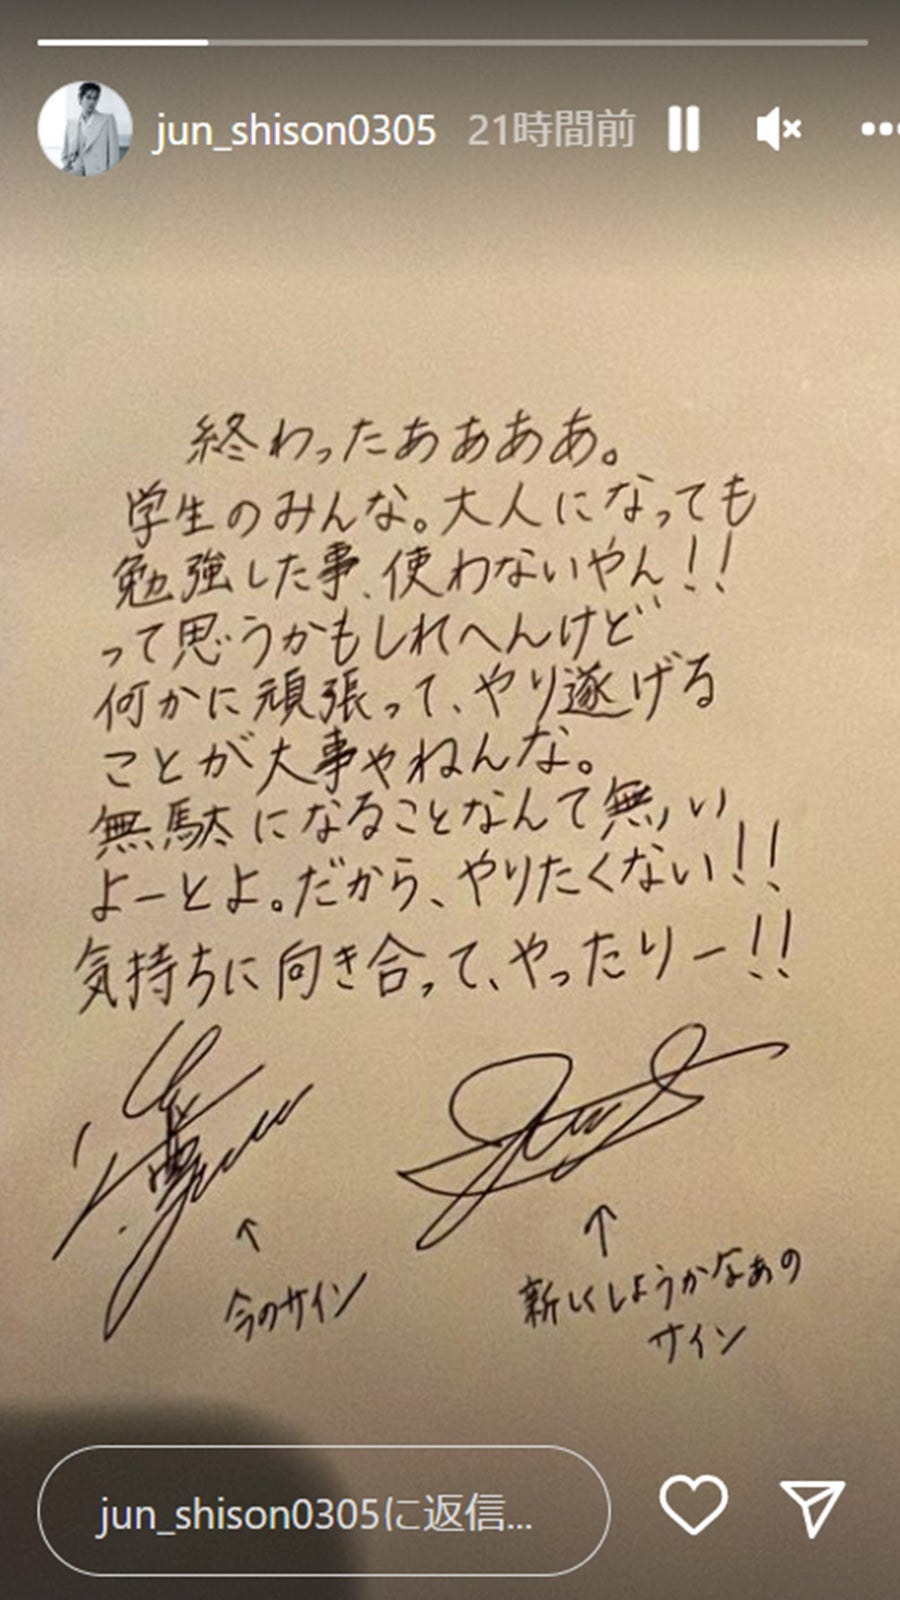 jun_shison0305 21時間前
終わったああああ。
学生のみんな。大人になっても
勉強した事、使わないやん!!
って思うかもしれへんけど
何かに頑張って、やり遂げる
ことが大事やねんな。
無駄になることなんて無い
よーとよ。だから、やりたくない!!
気持ちに向き合って、やったりー!!
↑ ↑
今のサイン
新しくしようかなぁの
サイン
jun_shison0305に返信...